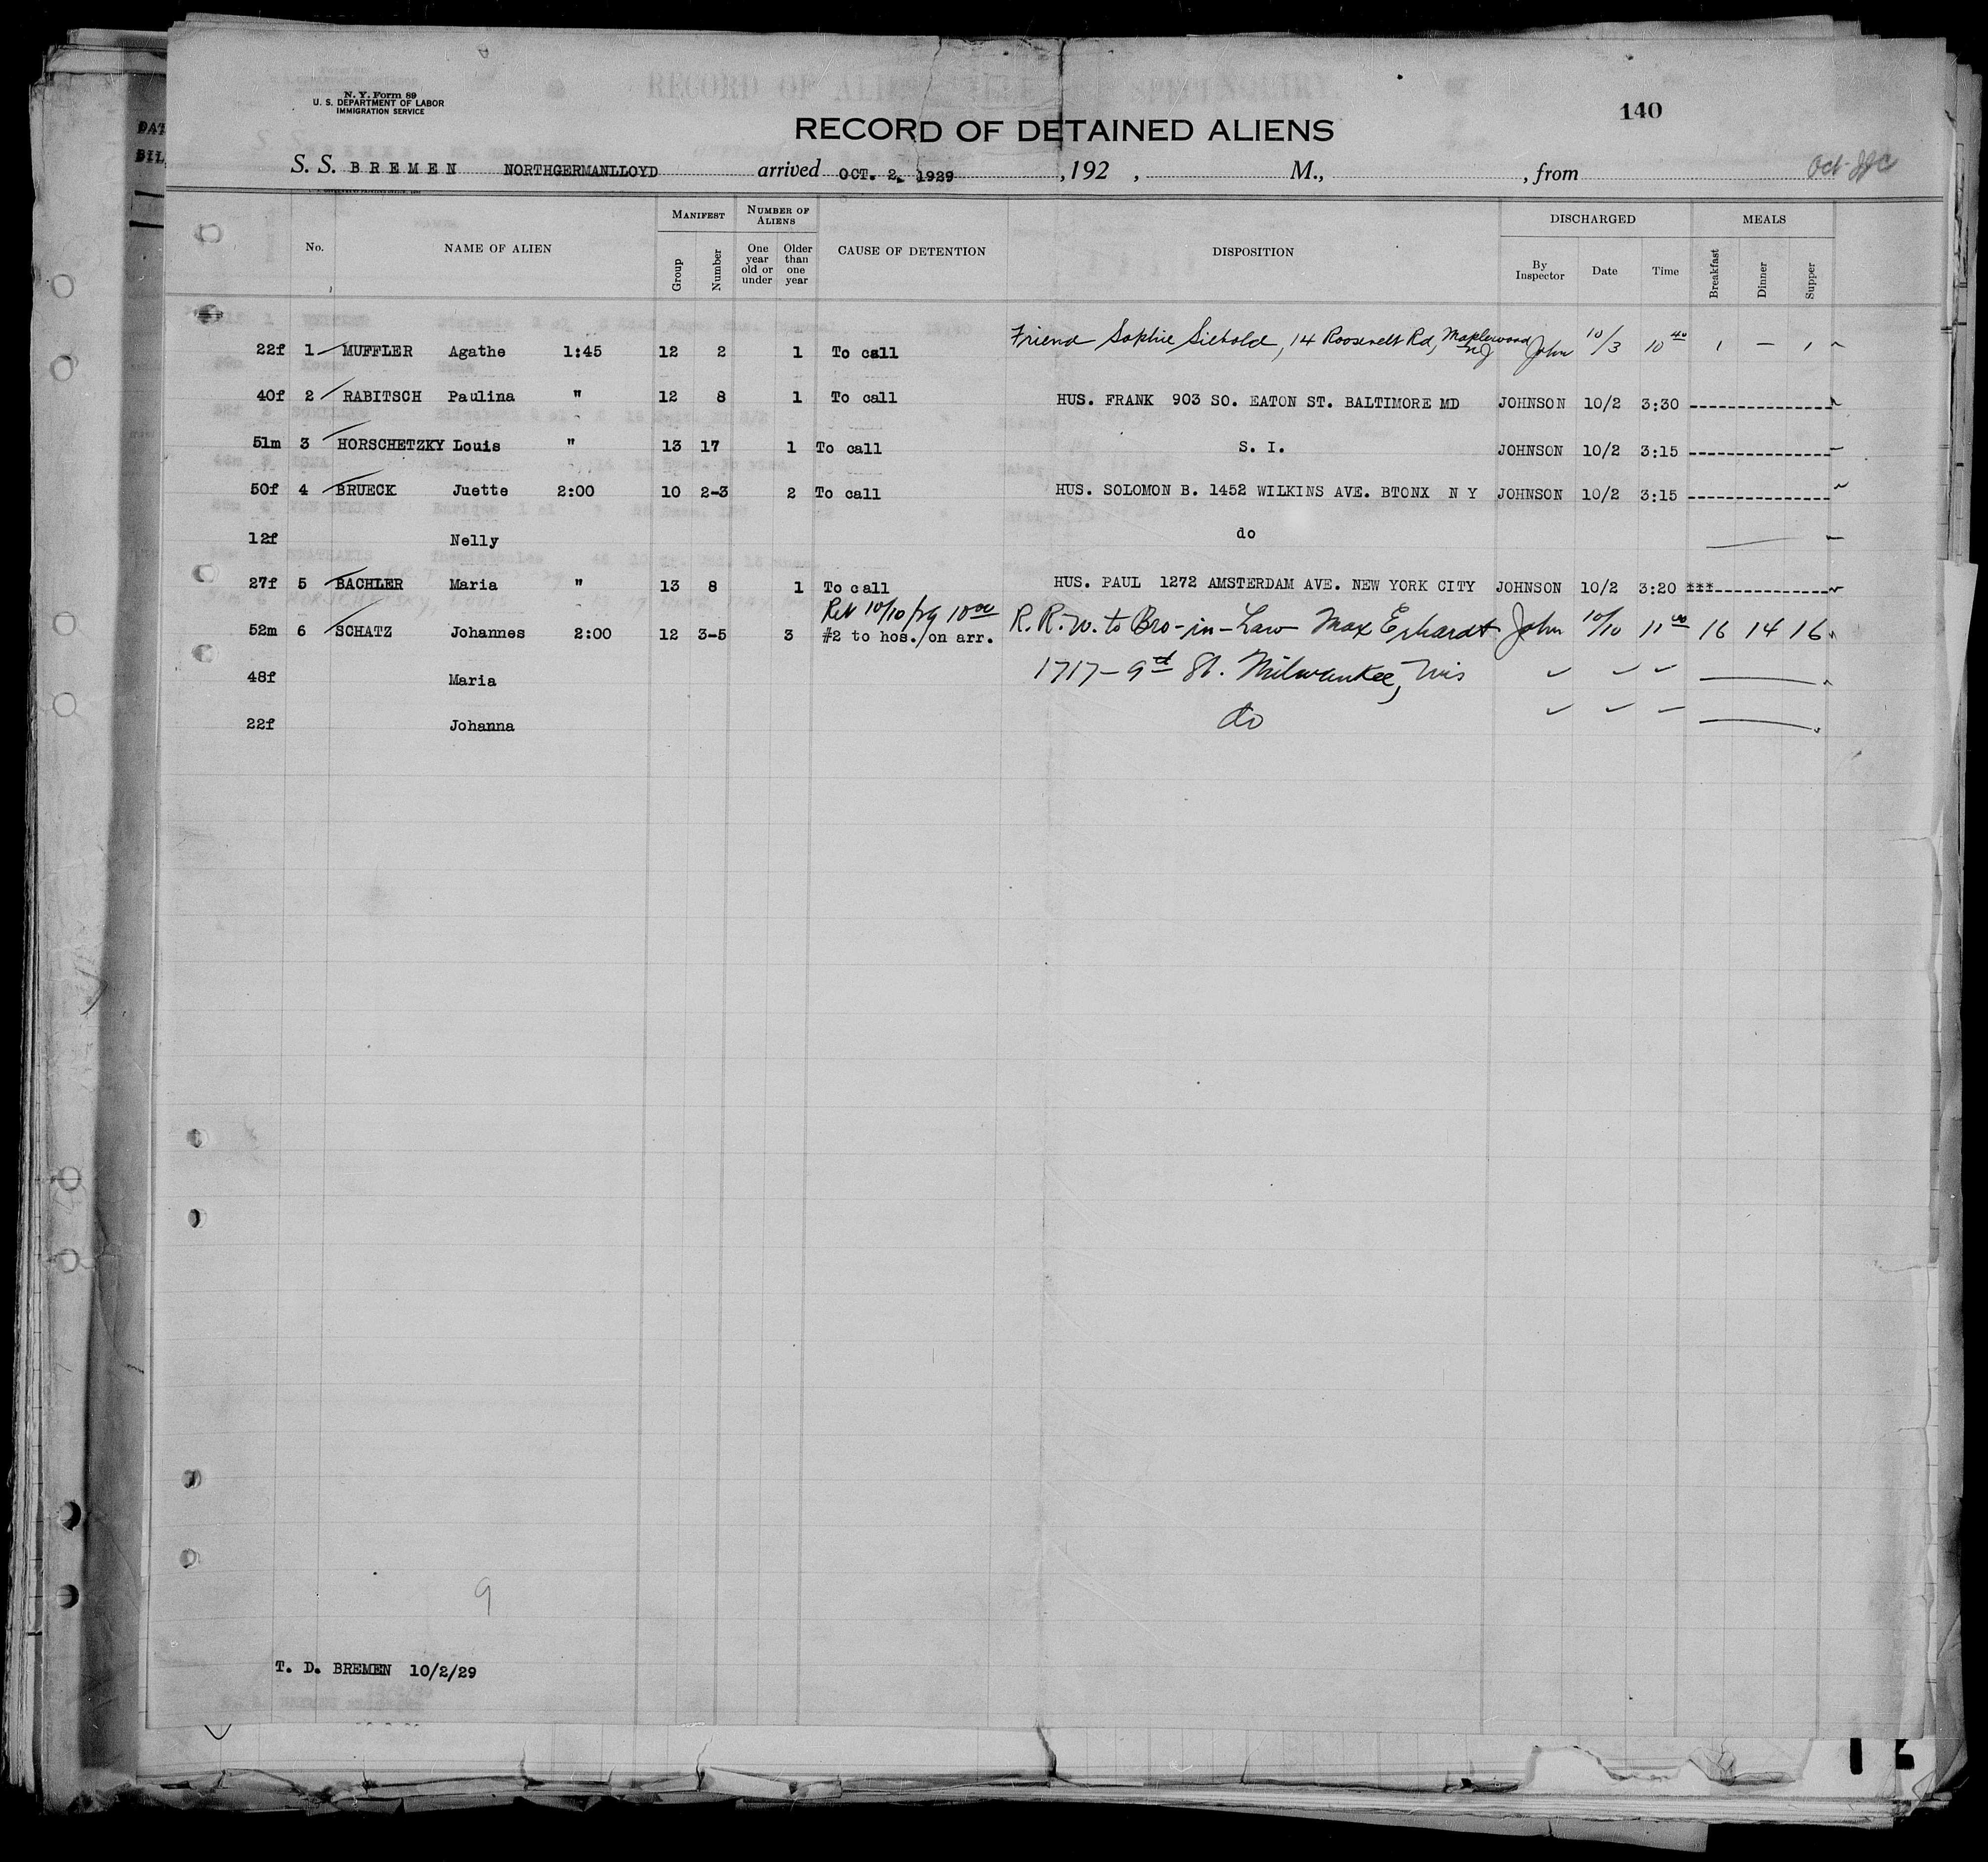 N. Y. Form 89
U. S. DEPARTMENT OF LABOR
IMMIGRATION SERVICE
140
RECORD OF DETAINED ALIENS
S. S. BREMEN NORTHGERMANLLOYD arrived OCT. 2, 1929 , 192 , M., , from
Oct
No. NAME OF ALIEN MANIFEST Group Number NUMBER OF ALIENS One year old or under Older than one year CAUSE OF DETENTION DISPOSITION DISCHARGED By Inspector Date Time MEALS Breakfast Dinner Supper
22f 1 MUFFLER Agathe 1:45 12 2 1 To call Friend Sophie Siebold, 14 Roosevelt Rd, Maplewood NJ John 10/3 10 40 1 — 1
40f 2 RABITSCH Paulina " 12 8 1 To call HUS. FRANK 903 SO. EATON ST. BALTIMORE MD JOHNSON 10/2 3:30 ----------------
51m 3 HORSCHETZKY Louis " 13 17 1 To call S. I. JOHNSON 10/2 3:15 ----------------
50f 4 BRUECK Juette 2:00 10 2-3 2 To call HUS. SOLOMON B. 1452 WILKINS AVE. BTONX N Y JOHNSON 10/2 3:15 ----------------
12f Nelly do
27f 5 BACHLER Maria " 13 8 1 To call HUS. PAUL 1272 AMSTERDAM AVE. NEW YORK CITY JOHNSON 10/2 3:20 ***-------------
Ret 10/10/29 10 00
52m 6 SCHATZ Johannes 2:00 12 3-5 3 #2 to hos./on arr. R. R. W. to Bro-in-Law Max Erhardt John 10/10 11 00 16 14 16
48f Maria 1717 - 9th St. Milwaukee, Wis
22f Johanna do
9
T. D. BREMEN 10/2/29